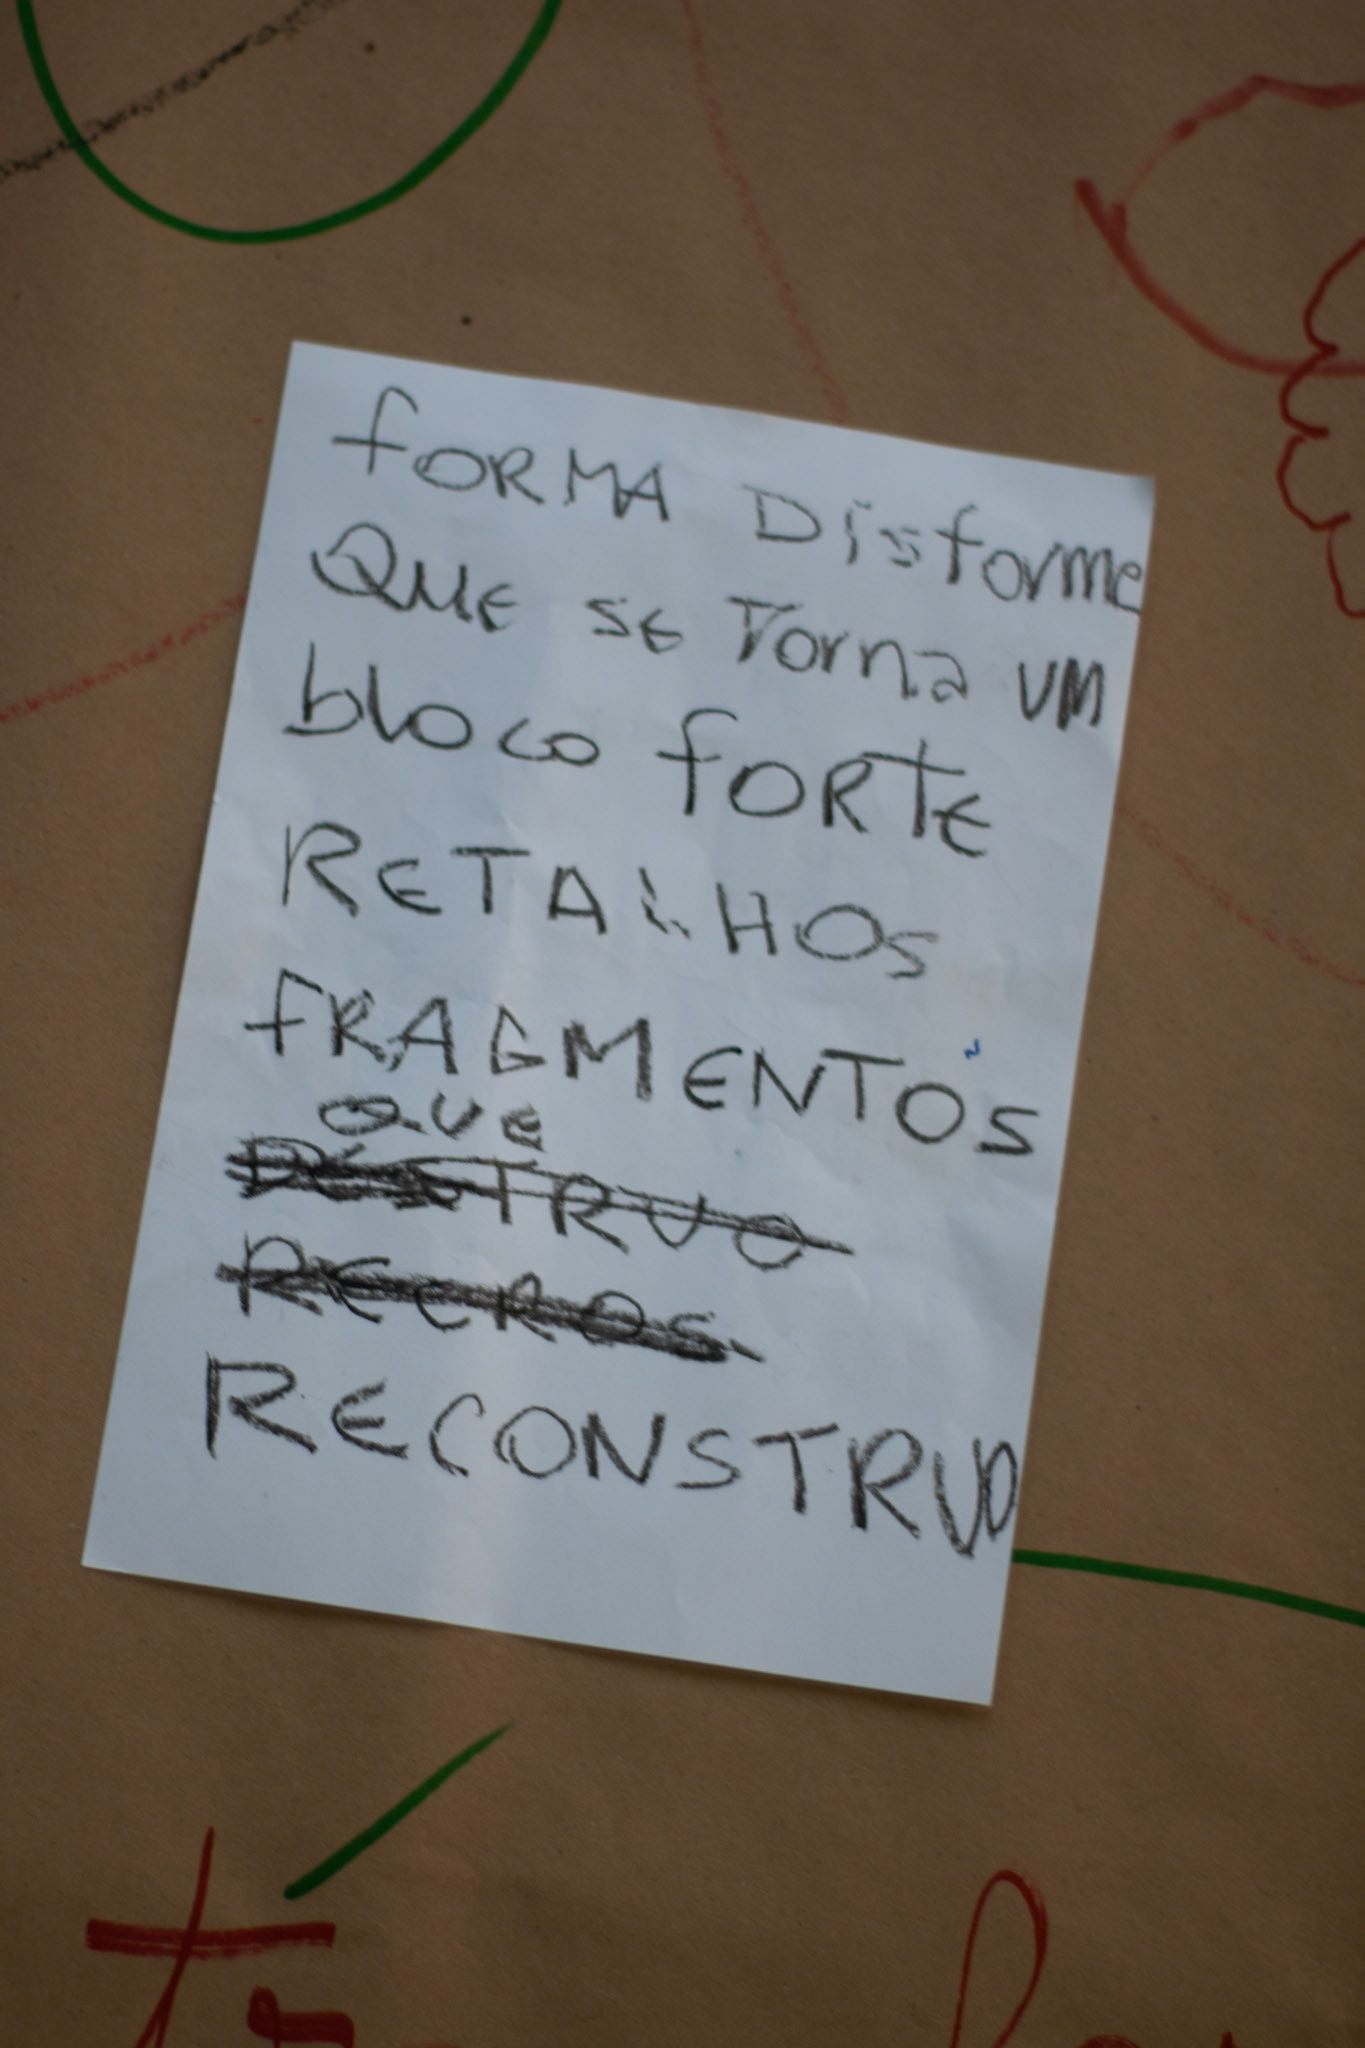 fORMA Disforme
QUE SE Torna UM
bloco fORTE
RETALHOS
fRAGMENTOS
QUE
DESTRUO
RECONSTRUO